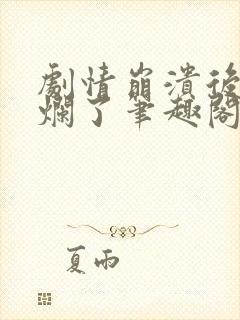 劇情崩潰後
爛了筆趣閣
夏雨